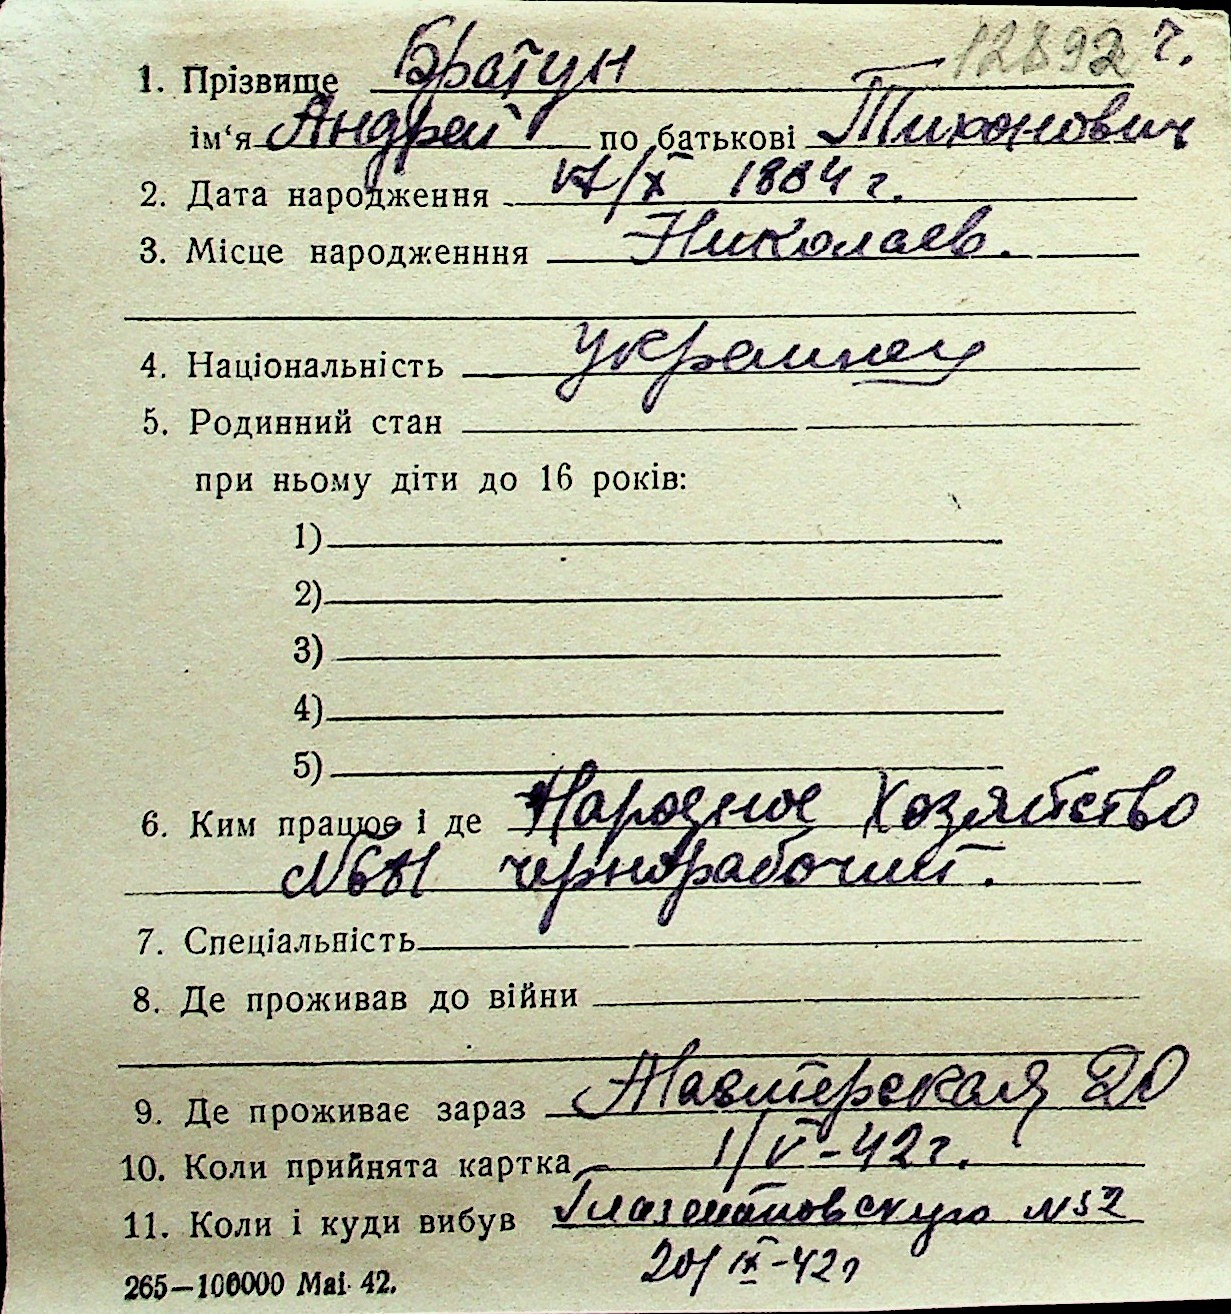 12892 г.
1. Прізвище Братун
ім‘я Андрей по батькові Тихонович
2. Дата народження /X 1884 г.
3. Місце народженння Николаев.
4. Національність украинец
5. Родинний стан
при ньому діти до 16 років:
1)
2)
3)
4)
5)
6. Ким працює і де Народное Хозяйство
чернорабочий.
7. Спеціальність
8. Де проживав до війни
9. Де проживає зараз 20
10. Коли прийнята картка 1/V-42г.
11. Коли і куди вибув №52
20/IX-42г
265—100000 Mai 42.